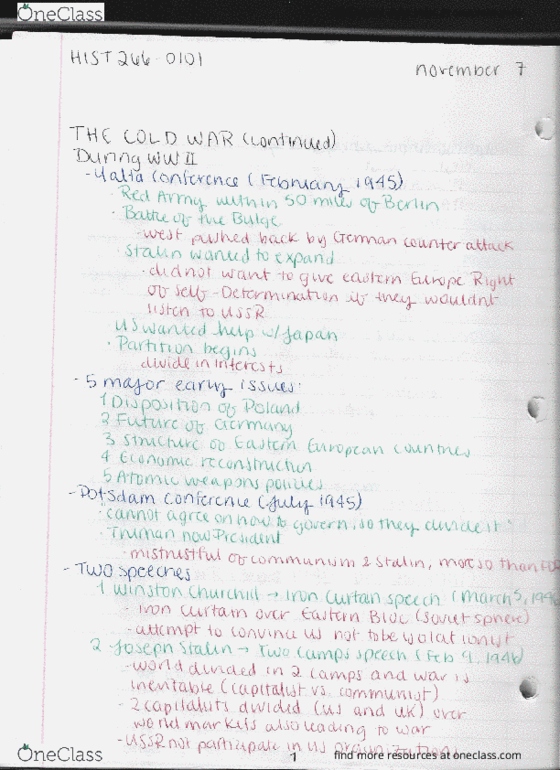 OneClass
HIST 266-0101
november 7
THE COLD WAR (continued)
During WW II
- Yalta Conference (February 1945)
· Red Army within 50 miles of Berlin
· Battle of the Bulge
- west pushed back by German counter attack
· Stalin wanted to expand
· did not want to give eastern Europe Right
of self-Determination if they wouldnt
listen to USSR
US wanted help w/ Japan
· Partition begins
divide in interests
- 5 major early issues:
1 Disposition of Poland
2 Future of Germany
3 Structure of Eastern European countries
4 Economic reconstruction
5 Atomic weapons policies
- Potsdam Conference (July 1945)
· "cannot agree on how to govern, so they divide it"
· Truman now President
- mistrustful of communism & Stalin, more so than FDR
- Two speeches
1 Winston Churchill → Iron Curtain speech (March 5, 1946
· iron curtain over Eastern Bloc (soviet sphere)
- attempt to convince US not to be isolationist
2 Joseph Stalin → Two Camps speech (Feb 9, 1946)
- world divided in 2 camps and war is
inevitable (capitalist vs. communist)
- 2 capitalists divided (US and UK) over
world markets also leading to war
- USSR not participate in US organizations
OneClass
1
find more resources at oneclass.com